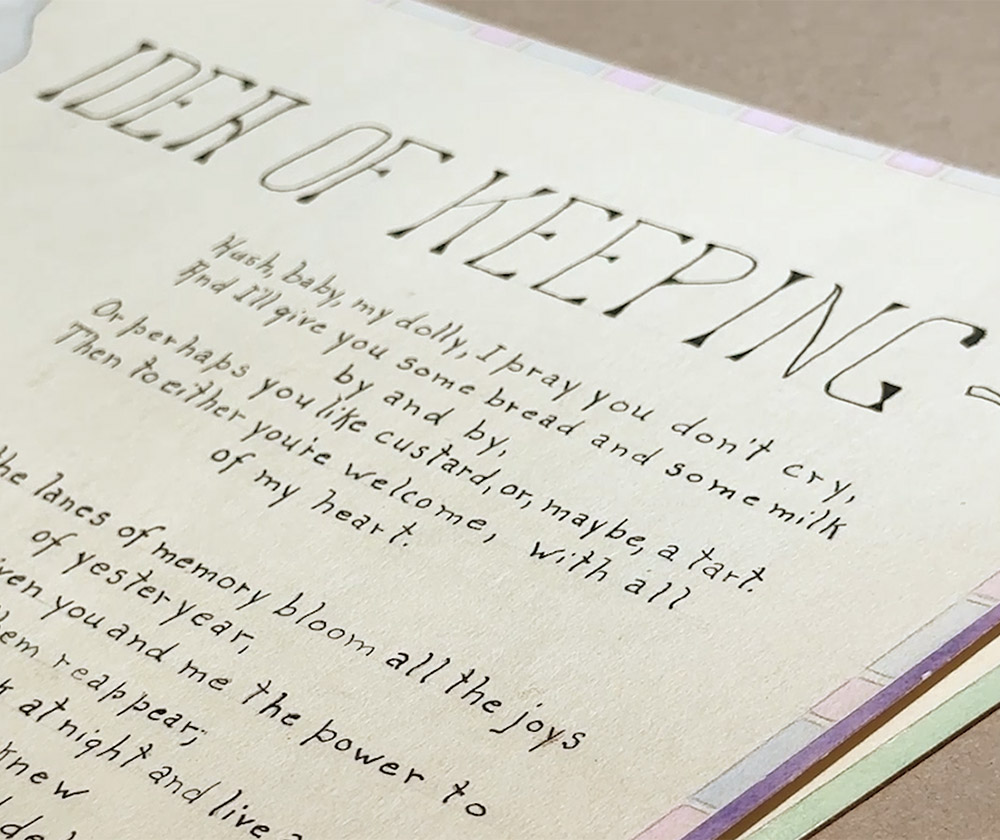 IDEA OF KEEPING -
Hush, baby, my dolly, I pray you don't cry,
And I'll give you some bread and some milk
by and by;
Or perhaps you like custard, or, maybe, a tart.
Then to either you're welcome, with all
of my heart.
the lanes of memory bloom all the joys
of yesteryear,
you and me the power to
reappear;
at night and live
knew